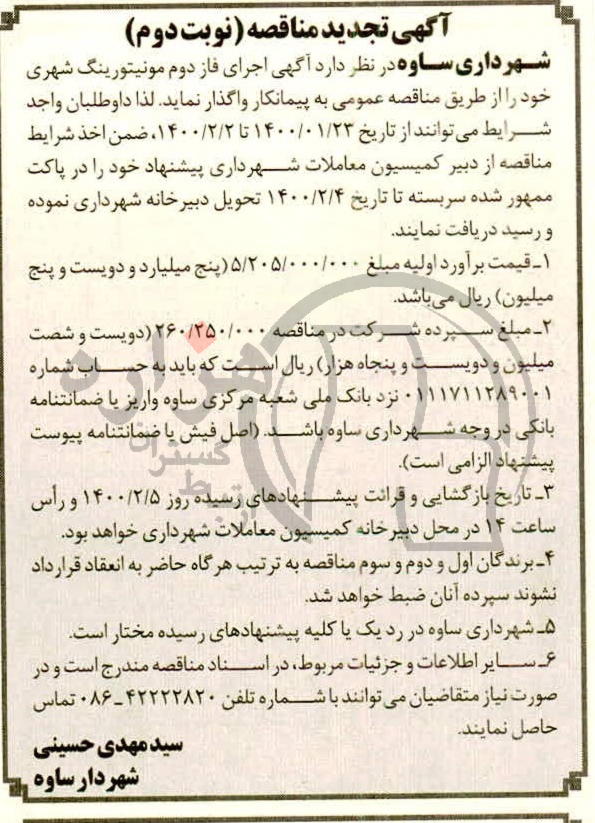 آگهی تجدید مناقصه (نوبت دوم)
شهرداری ساوه در نظر دارد آگهی اجرای فاز دوم مونیتورینگ شهری
خود را از طریق مناقصه عمومی به پیمانکار واگذار نماید. لذا داوطلبان واجد
شرایط می‌توانند از تاریخ ۱۴۰۰/۰۱/۲۳ تا ۱۴۰۰/۲/۲، ضمن اخذ شرایط
مناقصه از دبیر کمیسیون معاملات شهرداری پیشنهاد خود را در پاکت
ممهور شده سربسته تا تاریخ ۱۴۰۰/۲/۴ تحویل دبیرخانه شهرداری نموده
و رسید دریافت نمایند.
۱ـ قیمت برآورد اولیه مبلغ ۵/۲۰۵/۰۰۰/۰۰۰ (پنج میلیارد و دویست و پنج
میلیون) ریال می‌باشد.
۲ـ مبلغ سپرده شرکت در مناقصه ۲۶۰/۲۵۰/۰۰۰ (دویست و شصت
میلیون و دویست و پنجاه هزار) ریال است که باید به حساب شماره
۰۱۱۱۷۱۱۲۸۹۰۰۱ نزد بانک ملی شعبه مرکزی ساوه واریز یا ضمانتنامه
بانکی در وجه شهرداری ساوه باشد. (اصل فیش یا ضمانتنامه پیوست
پیشنهاد الزامی است).
۳ـ تاریخ بازگشایی و قرائت پیشنهادهای رسیده روز ۱۴۰۰/۲/۵ و رأس
ساعت ۱۴ در محل دبیرخانه کمیسیون معاملات شهرداری خواهد بود.
۴ـ برندگان اول و دوم و سوم مناقصه به ترتیب هرگاه حاضر به انعقاد قرارداد
نشوند سپرده آنان ضبط خواهد شد.
۵ـ شهرداری ساوه در رد یک یا کلیه پیشنهادهای رسیده مختار است.
۶ـ سایر اطلاعات و جزئیات مربوط، در اسناد مناقصه مندرج است و در
صورت نیاز متقاضیان می‌توانند با شماره تلفن ۴۲۲۲۲۸۲۰ـ۰۸۶ تماس
حاصل نمایند.
سید مهدی حسینی
شهردار ساوه
هزاره
گستران